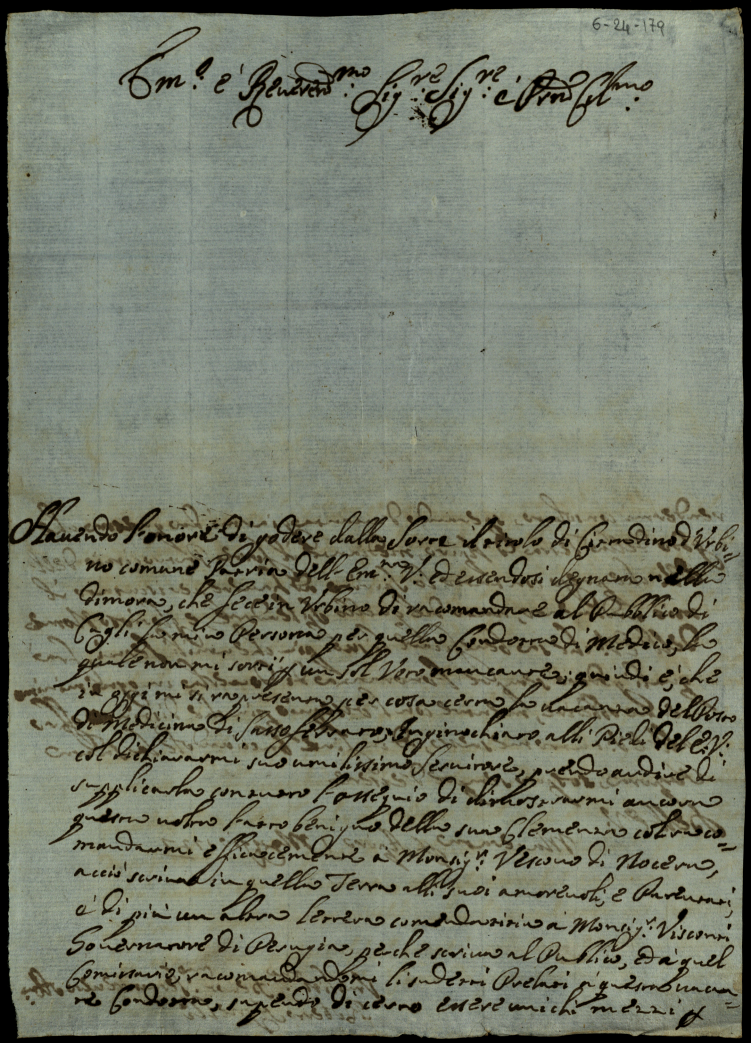 6-24-179
Em.o e' Reverend.mo Sig.re Sig.re e' Pron Col.mo
Havendo l'onore di godere dalla Sorte il titolo di Cittadino d'Urbi=
no comune Patria dell'Em.re V. ed essendosi degnata nella
dimora, che fece in Urbino di racomandare al Pubblico di
Cagli la mia Persona per quella Condotta di Medico, la
quale non mi sortì p un sol Voto mancante; quindi è, che
in oggi mi si rapresenta per cosa certa la vacanza del Posto
di Medicina di Sassoferrato, Inginochiato alli Piedi dell'E.V.
col dichiararmi suo umilissimo Servitore, prendo audire di
supplicarla con tutto l'ossequio di dimostrarmi ancora
questa volta tratto benigno della sua Clemenza col raco=
mandarmi efficacemente à Monsig.r Vescovo di Nocera,
acciò scriva in quella Terra alli suoi amorevoli, e Parentati,
e' di più un altra lettera comendatizia à Monsig.r Visconti
Governatore di Perugia, perche scriva al Publico, ed a quel
Comissario, racomandandomi li sudetti Prelati p questa vacan=
te Condotta, sapendo di certo essere unichi mezzi p